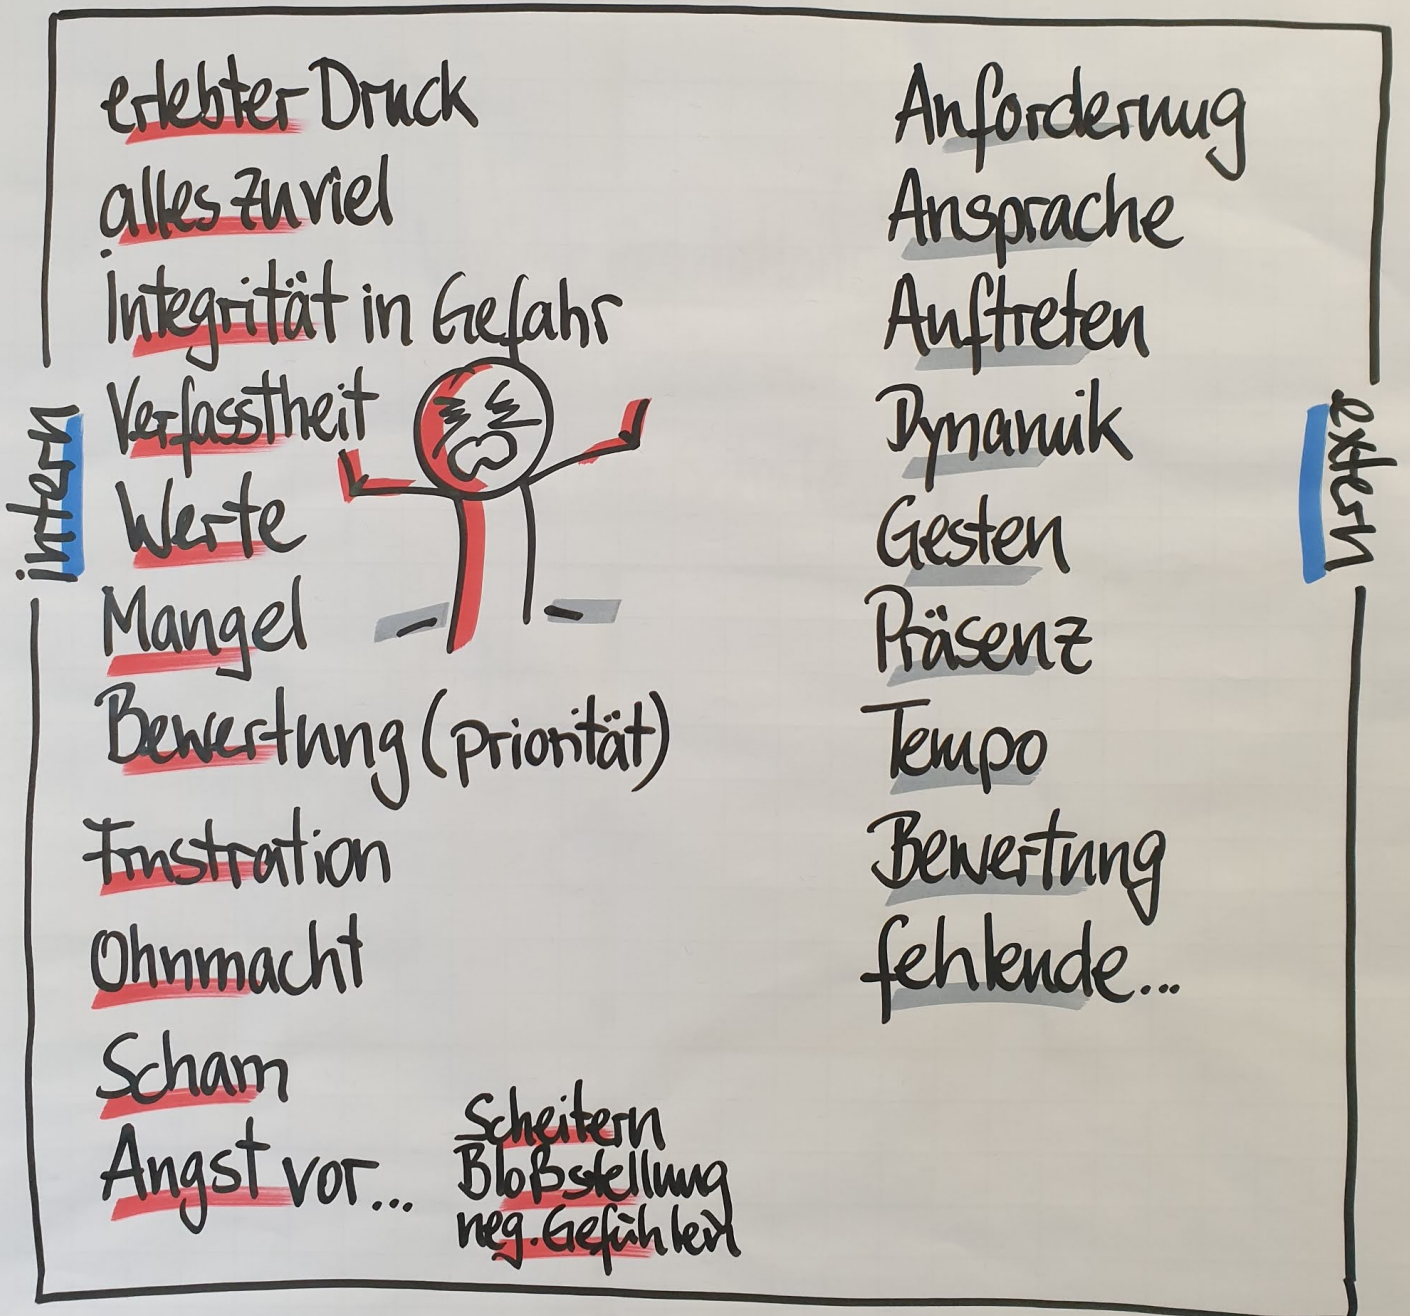 intern
erlebter Druck
alles zuviel
Integrität in Gefahr
Verfasstheit
Werte
Mangel
Bewertung (Priorität)
Frustration
Ohnmacht
Scham
Angst vor...
Scheitern
Bloßstellung
neg. Gefühlen
extern
Anforderung
Ansprache
Auftreten
Dynamik
Gesten
Präsenz
Tempo
Bewertung
fehlende...